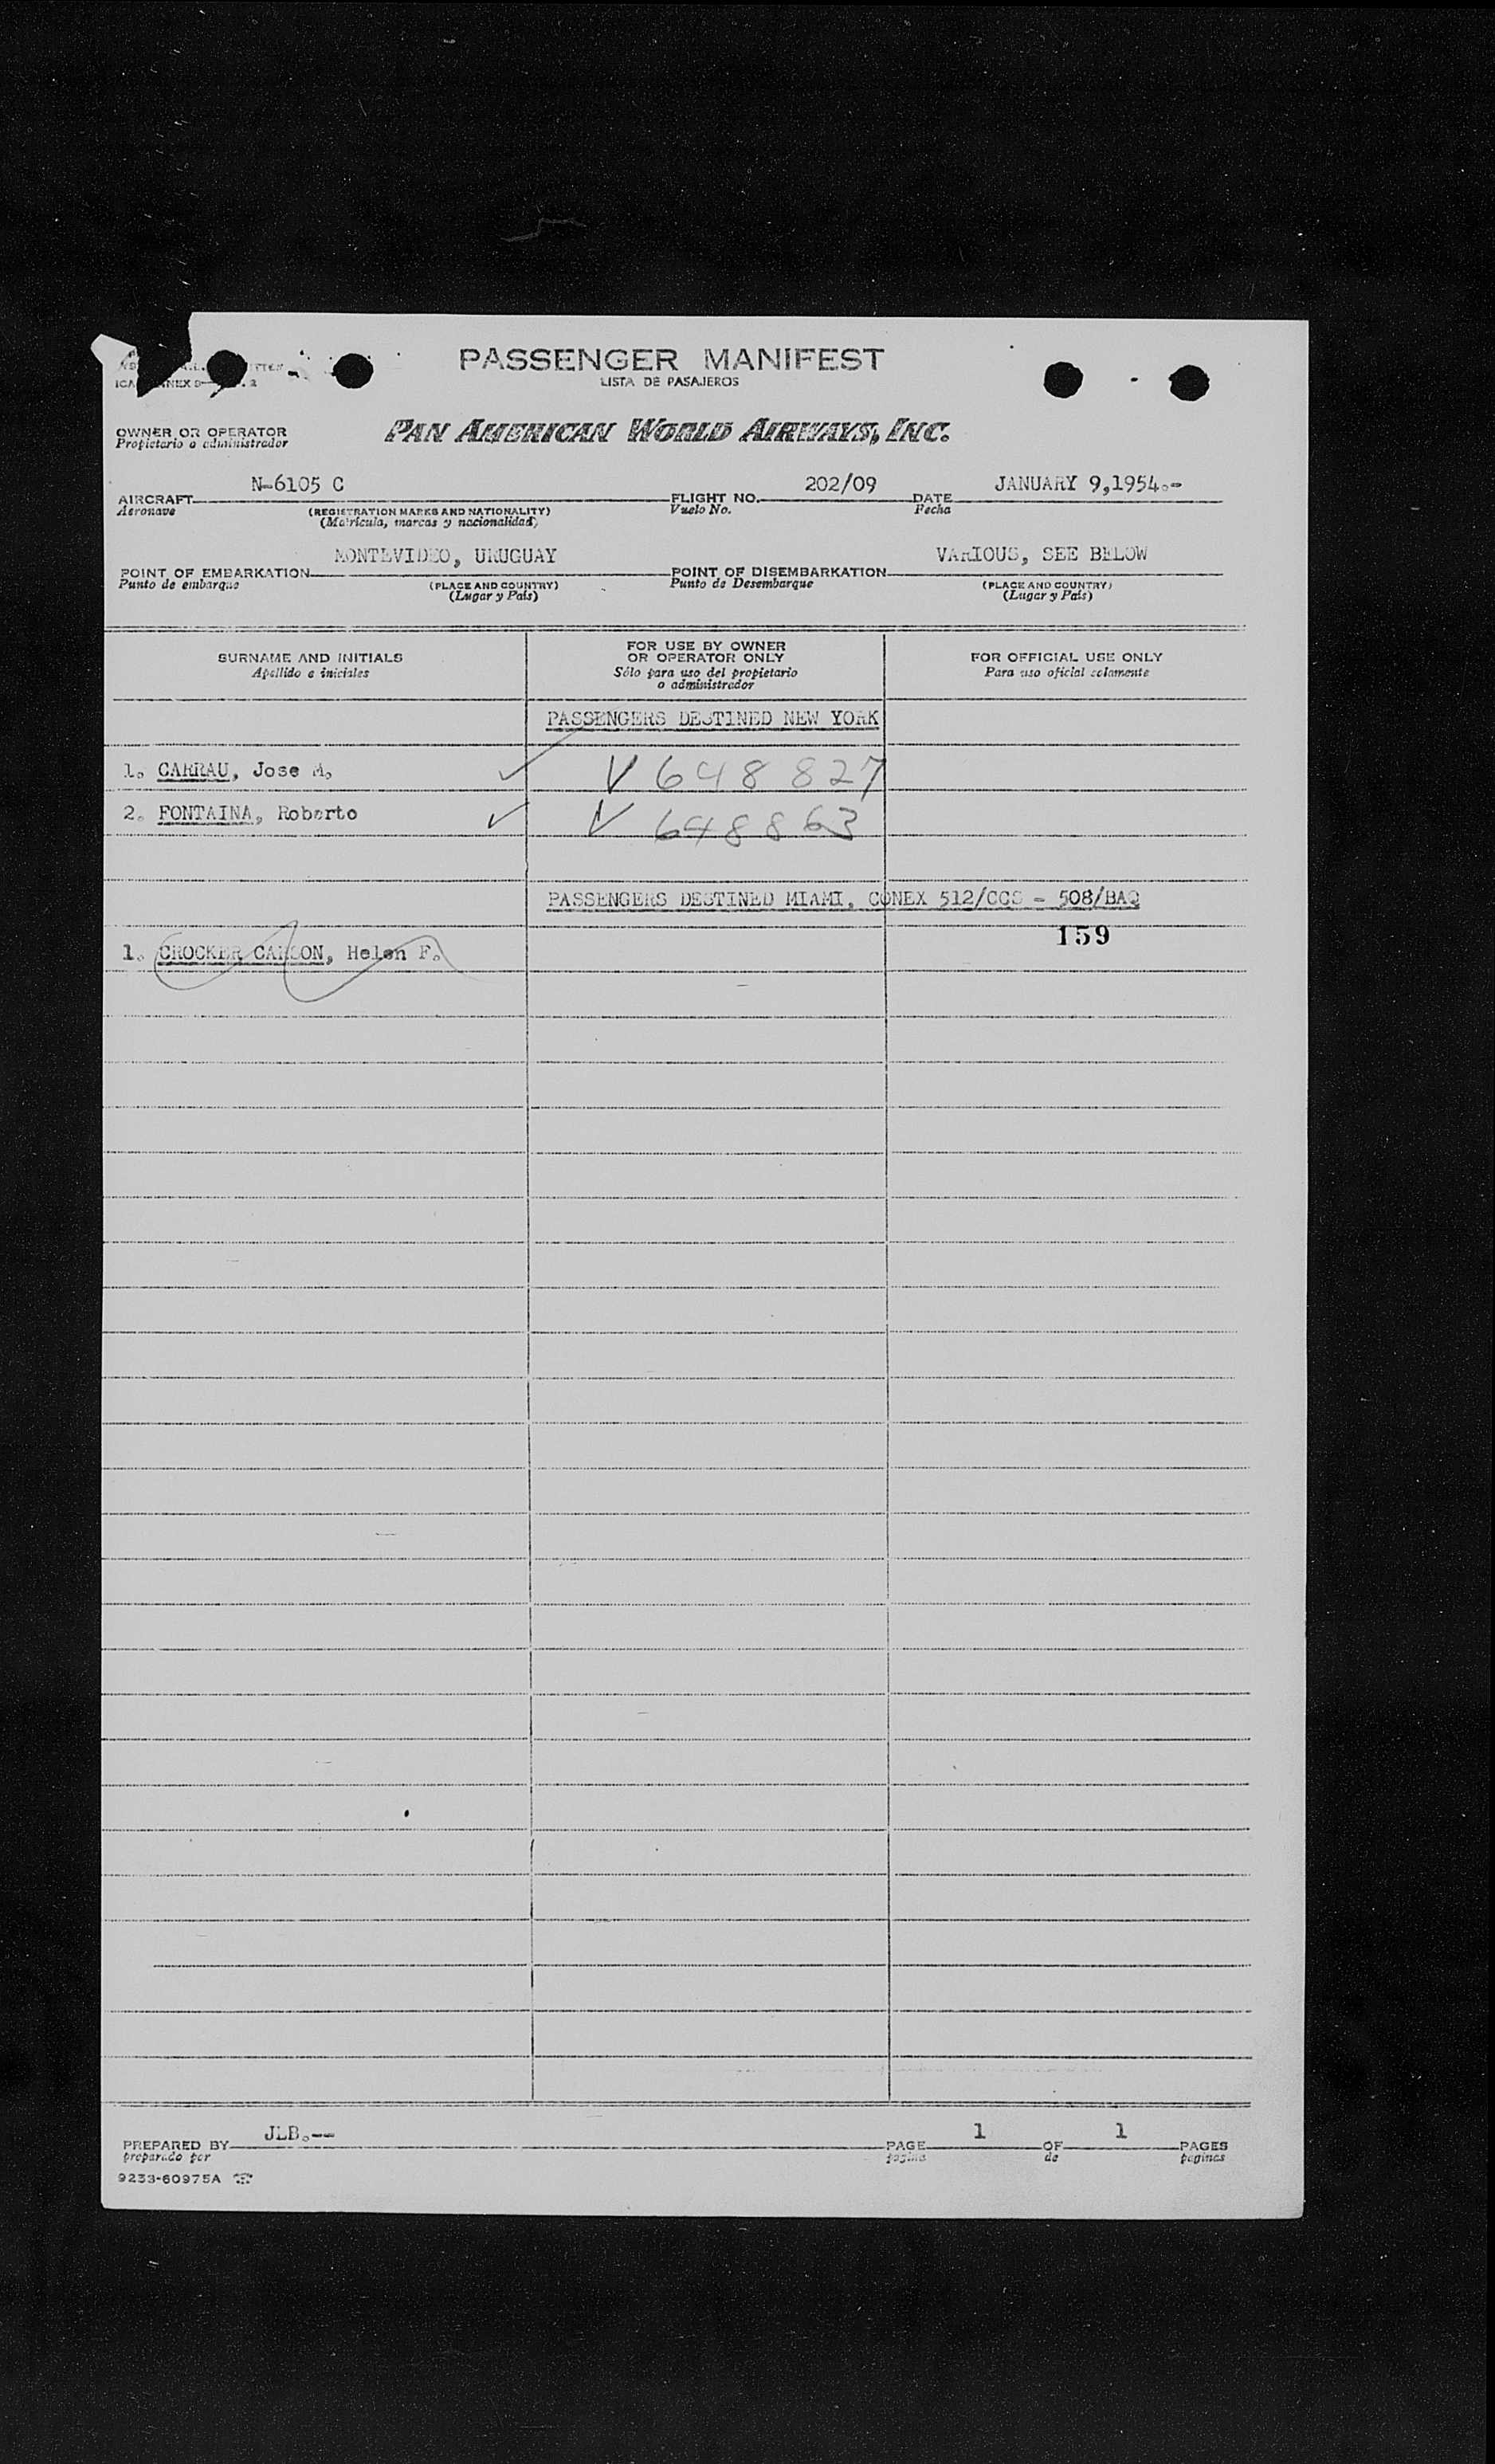 PASSENGER MANIFEST
LISTA DE PASAJEROS
OWNER OR OPERATOR
Propietario o administrador
PAN AMERICAN WORLD AIRWAYS, INC.
N-6105 C 202/09 JANUARY 9,1954.-
AIRCRAFT FLIGHT NO. DATE
Aeronave (REGISTRATION MARKS AND NATIONALITY) Vuelo No. Fecha
(Matrícula, marcas y nacionalidad)
MONTEVIDEO, URUGUAY VARIOUS, SEE BELOW
POINT OF EMBARKATION POINT OF DISEMBARKATION
Punto de embarque (PLACE AND COUNTRY) Punto de Desembarque (PLACE AND COUNTRY)
(Lugar y País) (Lugar y País)
SURNAME AND INITIALS
Apellido e iniciales
FOR USE BY OWNER
OR OPERATOR ONLY
Sólo para uso del propietario
o administrador
FOR OFFICIAL USE ONLY
Para uso oficial solamente
PASSENGERS DESTINED NEW YORK
1. CARRAU, Jose M. V 648 827
2. FONTAINA, Roberto V 648863
PASSENGERS DESTINED MIAMI, CONEX 512/CCS - 508/BAQ
159
1. CROCKER CARSON, Helen F.
JLB.-- 1 1
PREPARED BY PAGE OF PAGES
preparado por pagina de paginas
9233-60975A